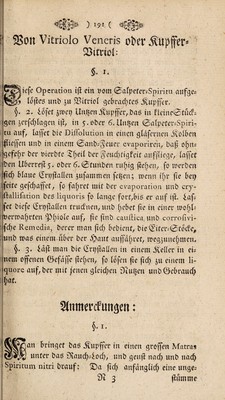 ) 191 (
Von Vitriolo Veneris oder Kupffer-
Vitriol:
§. 1.
Diese Operation ist ein vom Salpeter-Spiritu aufge-
löstes und zu Vitriol gebrachtes Kupffer.
§. 2. Löset zwey Untzen Kupffer, das in kleine Stück-
gen zerschlagen ist, in 5. oder 6. Untzen Salpeter-Spiri-
tu auf, lasset die Dissolution in einen gläsernen Kolben
fliessen und in einem Sand-Feuer evaporiren, daß ohn-
gefehr der vierdte Theil der Feuchtigkeit auffliege, lasset
den Uberrest 5. oder 6. Stunden ruhig stehen, so werden
sich blaue Crystallen zusammen setzen; wenn ihr sie bey
seite geschaffet, so fahret mit der evaporation und cry-
stallisation des liquoris so lange fort, bis er auf ist. Las-
set diese Crystallen treucknen, und hebet sie in einer wohl-
verwahrten Phiole auf, sie sind caustica und corrosivi-
sche Remedia, derer man sich bedient, die Eiter-Stöcke,
und was einem über der Haut auffähret, wegzunehmen.
§. 3. Läst man die Crystallen in einem Keller in ei-
nem offenen Gefässe stehen, so lösen sie sich zu einem li-
quore auf, der mit jenen gleichen Nutzen und Gebrauch
hat.
Anmerckungen:
§. 1.
Man bringet das Kupffer in einen grossen Matras
unter das Rauch-Loch, und geust nach und nach
Spiritum nitri drauf: Da sich anfänglich eine unge-
N 3 stümme